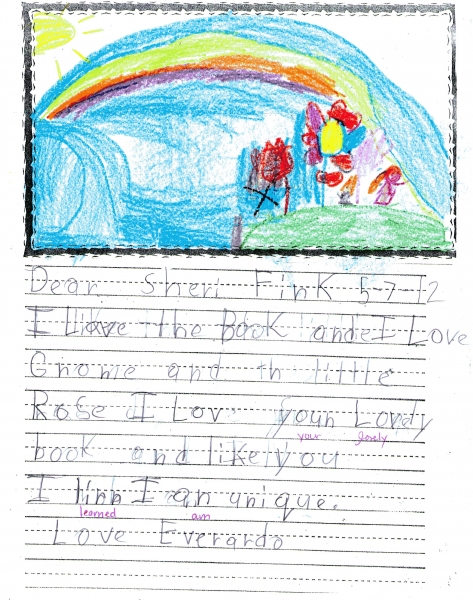 Dear Sheri Fink 5-7-12
I Liave the Book ande I Love
Gnome and th little
Rose I Lov your Lovely
your lovely
book and like you
I linn I an unique.
learned am
Love Everardo